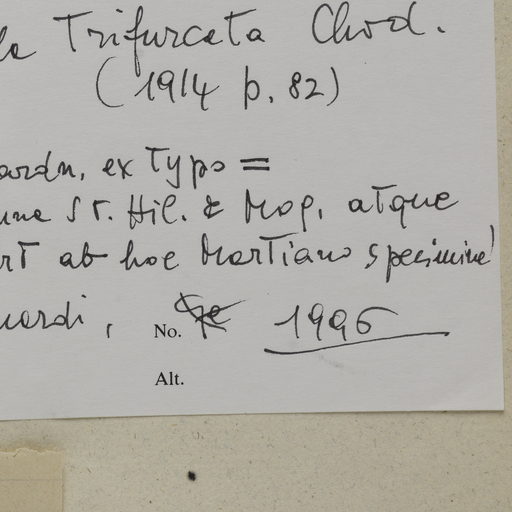 la Trifurcata Chod.
(1914 p. 82)
ardn, ex Typo =
une St. Hil. & Moq. atque
rt ab hoc Martiano specimine
uardi,
No. 1996
Alt.